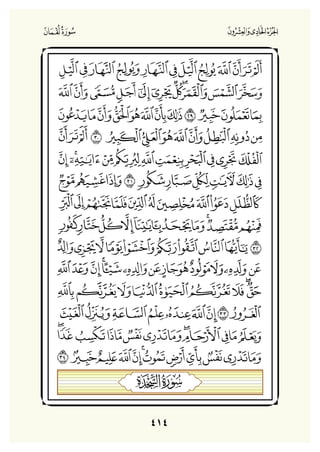 الجُزْءُ الحَادِي وَالعِشْرُونَ
سُورَةُ لُقْمَان
أَلَمْ تَرَ أَنَّ ٱللَّهَ يُولِجُ ٱلَّيْلَ فِي ٱلنَّهَارِ وَيُولِجُ ٱلنَّهَارَ فِي ٱلَّيْلِ
وَسَخَّرَ ٱلشَّمْسَ وَٱلْقَمَرَۖ كُلٌّ يَجْرِيٓ إِلَىٰٓ أَجَلٍ مُّسَمًّى وَأَنَّ ٱللَّهَ
بِمَا تَعْمَلُونَ خَبِيرٌ ٢٩ ذَٰلِكَ بِأَنَّ ٱللَّهَ هُوَ ٱلْحَقُّ وَأَنَّ مَا يَدْعُونَ
مِن دُونِهِ ٱلْبَٰطِلُ وَأَنَّ ٱللَّهَ هُوَ ٱلْعَلِيُّ ٱلْكَبِيرُ ٣٠ أَلَمْ تَرَ أَنَّ
ٱلْفُلْكَ تَجْرِي فِي ٱلْبَحْرِ بِنِعْمَتِ ٱللَّهِ لِيُرِيَكُم مِّنْ ءَايَٰتِهِۦٓۚ إِنَّ
فِي ذَٰلِكَ لَأٓيَٰتٍ لِّكُلِّ صَبَّارٍ شَكُورٍ ٣١ وَإِذَا غَشِيَهُم مَّوْجٌ
كَٱلظُّلَلِ دَعَوُاْ ٱللَّهَ مُخْلِصِينَ لَهُ ٱلدِّينَ فَلَمَّا نَجَّىٰهُمْ إِلَى ٱلْبَرِّ
فَمِنْهُم مُّقْتَصِدٌۚ وَمَا يَجْحَدُ بِـَٔايَٰتِنَآ إِلَّا كُلُّ خَتَّارٍ كَفُورٍ
٣٢ يَٰٓأَيُّهَا ٱلنَّاسُ ٱتَّقُواْ رَبَّكُمْ وَٱخْشَوْاْ يَوْمًا لَّا يَجْزِي وَالِدٌ
عَن وَلَدِهِۦ وَلَا مَوْلُودٌ هُوَ جَازٍ عَن وَالِدِهِۦ شَيْـًٔاۚ إِنَّ وَعْدَ ٱللَّهِ
حَقٌّۖ فَلَا تَغُرَّنَّكُمُ ٱلْحَيَوٰةُ ٱلدُّنْيَا وَلَا يَغُرَّنَّكُم بِٱللَّهِ
ٱلْغَرُورُ ٣٣ إِنَّ ٱللَّهَ عِندَهُۥ عِلْمُ ٱلسَّاعَةِ وَيُنَزِّلُ ٱلْغَيْثَ
وَيَعْلَمُ مَا فِي ٱلْأَرْحَامِۖ وَمَا تَدْرِي نَفْسٌ مَّاذَا تَكْسِبُ غَدًاۖ
وَمَا تَدْرِي نَفْسٌۢ بِأَيِّ أَرْضٍ تَمُوتُۚ إِنَّ ٱللَّهَ عَلِيمٌ خَبِيرٌۢ ٣٤
سُورَةُ السَّجْدَةِ
٤١٤